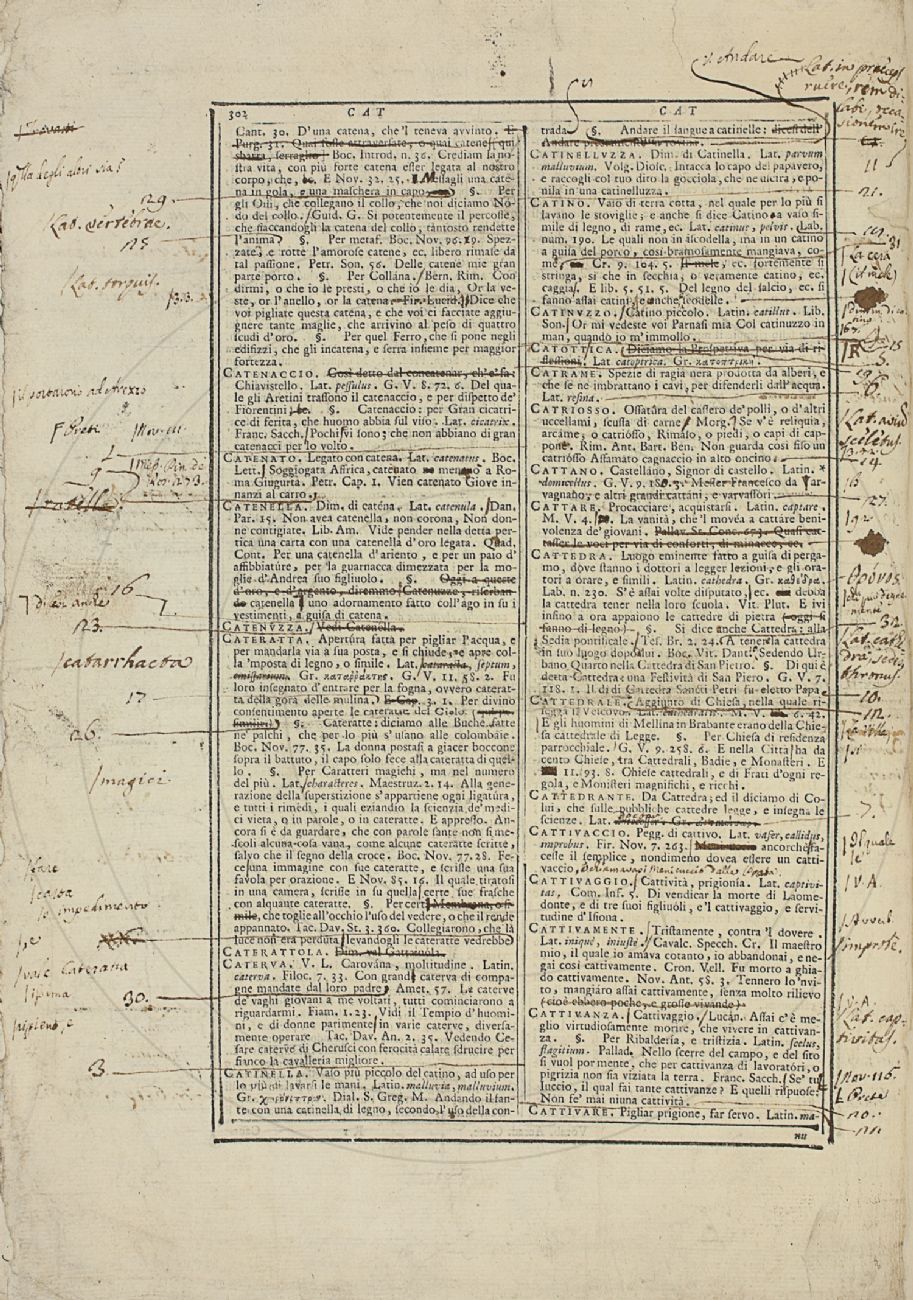 v. Andare
Lat. in præceps
ruere, rem di-
302
CAT
CAT
Cant. 30. D'una catena, che 'l teneva avvinto. E
Purg. 31. Quai fosse attraversate, o quai catene
sbarra, serraglio. Boc. Introd. n. 36. Crediam la no-
stra vita, con più forte catena esser legata al nostro
corpo, che, E Nov. 32. 25. Messagli una cate-
na in gola, e una maschera in capo §. Per
gli Ossi, che collegano il collo, che noi diciamo No-
do del collo. Guid. G. Si potentemente il percosse,
che fiaccandogli la catena del collo, tantosto rendette
l'anima §. Per metaf. Boc. Nov. 96. 19. Spez-
zate, e rotte l'amorose catene, ec. libero rimase da
tal passione. Petr. Son. 56. Delle catene mie gran
parte porto. §. Per Collana, Bern. Rim. Con
dirmi, o che io le presti, o che io le dia, Or la ve-
ste, or l'anello, or la catena. Fir. Lucid. Dice che
voi pigliate questa catena, e che voi ci facciate aggiu-
gnere tante maglie, che arrivino al peso di quattro
scudi d'oro. §. Per quel Ferro, che si pone negli
edifizzi, che gli incatena, e serra insieme per maggior
fortezza.
CATENACCIO. Così detto dal concatenar, ch'e' fa:
Chiavistello. Lat. pessulus. G. V. 8. 72. 6. Del qua-
le gli Aretini trassono il catenaccio, e per dispetto de'
Fiorentini, ec. §. Catenaccio: per Gran cicatri-
ce di ferita, che huomo abbia sul viso. Lat. cicatrix.
Franc. Sacch. Pochi vi sono; che non abbiano di gran
catenacci per lo volto.
CATENATO. Legato con catena. Lat. catenatus. Boc.
Lett. Soggiogata Affrica, catenato ne menato a Ro-
ma Giugurta. Petr. Cap. 1. Vien catenato Giove in-
nanzi al carro.
CATENELLA. Dim. di catena. Lat. catenula. Dan.
Par. 15. Non avea catenella, non corona, Non don-
ne contigiate. Lib. Am. Vide pender nella detta per-
tica una carta con una catenella d'oro legata. Quad.
Cont. Per una catenella d'ariento, e per un paio d'
affibbiature, per la guarnacca dimezzata per la mo-
glie d'Andrea suo figliuolo. §. Oggi a queste
d'oro, e d'argento, diremmo Catenuzze, riserban-
do catenella uno adornamento fatto coll'ago in su i
vestimenti, a guisa di catena.
CATENUZZA. Vedi Catenella.
CATERATTA. Apertura fatta per pigliar l'acqua, e
per mandarla via à sua posta, e si chiude, e apre col-
la 'mposta di legno, o simile. Lat. cataracta, septum,
emissarium. Gr. καταῤῥάκτης. G. V. 11. 58. 2. Fu
loro insegnato d'entrare per la fogna, ovvero caterat-
ta della gora delle mulina. E Cap. 3. 1. Per divino
consentimento aperte le cateratte del Cielo
§. Cateratte: diciamo alle Buche, fatte
ne' palchi, che per lo più s'usano alle colombaie.
Boc. Nov. 77. 35. La donna postasi a giacer boccone
sopra il battuto, il capo solo fece alla cateratta di quel-
lo. §. Per Caratteri magichi, ma nel numero
del più. Lat. characteres. Maestruz. 2. 14. Alla gene-
razione della superstizione s'appartiene ogni ligatura,
e tutti i rimedi, i quali eziandio la scienza de' medi-
ci vieta, o in parole, o in cateratte. E appresso. An-
cora si è da guardare, che con parole sante non si me-
scoli alcuna cosa vana, come alcune cateratte scritte,
salvo che il segno della croce. Boc. Nov. 77. 28. Fe-
ce una immagine con sue cateratte, e scrisse una sua
favola per orazione. E Nov. 85. 16. Il quale tiratosi
in una camera, scrisse in su quella certe sue frasche
con alquante cateratte. §. Per cert Membrana, o si-
mile, che toglie all'occhio l'uso del vedere, o che il rende
appannato. Tac. Dav. St. 3. 360. Collegiarono, che la
luce non era perduta, levandogli le cateratte vedrebbe
CATERATTOLA. Dim. val Gattaiuola.
CATERVA. V. L. Carovana, moltitudine. Latin.
caterva. Filoc. 7. 33. Con grande caterva di compa-
gne mandate dal loro padre. Amet. 57. Le caterve
de' vaghi giovani a me voltati, tutti cominciarono a
riguardarmi. Fiam. 1. 23. Vidi il Tempio d'huomi-
ni, e di donne parimente in varie caterve, diversa-
mente operare. Tac. Dav. An. 2. 35. Vedendo Ce-
sare caterve di Cherusci con ferocità calate sdrucire per
fianco la cavalleria migliore.
CATINELLA. Vaso più piccolo del catino, ad uso per
lo più di lavarsi le mani. Latin. malluvia, malluvium.
Gr. χερόνιπτρον. Dial. S. Greg. M. Andando il fan-
te con una catinella di legno, secondo l'uso della con-
trada §. Andare il sangue a catinelle: dicesi dell'
CATINELLUZZA. Dim. di Catinella. Lat. parvum
malluvium. Volg. Diosc. Intacca lo capo del papavero,
e raccogli col tuo dito la gocciola, che ne uscirà, e po-
nila in una catinelluzza.
CATINO. Vaso di terra cotta, nel quale per lo più si
lavano le stoviglie; e anche si dice Catino a vaso si-
mile di legno, di rame, ec. Lat. catinus, pelvis. Lab.
num. 190. Le quali non in iscodella, ma in un catino
a guisa del porco, così bramosamente mangiava, co-
me, Cr. 9. 104. 5. ec. fortemente si
stringa, sì che in secchia, o veramente catino, ec.
caggia. E lib. 5. 51. 5. Del legno del falcio, ec. si
fanno assai catini, e anche scodelle.
CATINUZZO. Catino piccolo. Latin. catillus. Lib.
Son. Or mi vedeste voi Parnasi mia Col catinuzzo in
man, quando io m'immollo.
CATOTTICA. Diciamo la Prospettiva per via di ri-
flessioni. Lat. catoptrica. Gr. κατοπτρική.
CATRAME. Spezie di ragia nera prodotta da alberi, e
che se ne imbrattano i cavi, per difenderli dall'acqua.
Lat. resina.
CATRIOSSO. Ossatura del cassero de' polli, o d'altri
uccellami, scussa di carne. Morg. Se v'è reliquia,
arcame, o catriosso, Rimaso, o piedi, o capi di cap-
pone. Rim. Ant. Bart. Ben. Non guarda così fiso un
catriosso Affamato cagnaccio in alto oncino.
CATTANO. Castellano, Signor di castello. Latin. *
domicellus. G. V. 9. 180. 3. Messer Francesco da Var-
vagnano, e altri grandi cattani, e varvassori.
CATTARE. Procacciare, acquistarsi. Lat. captare.
M. V. 4. La vanità, che 'l movéa a cattare beni-
volenza de' giovani. Passav. St. Conc. 673. Quasi cat-
tasser le voci per via di conforti, di minacce, ec.
CATTEDRA. Luogo eminente fatto a guisa di perga-
mo, dove stanno i dottori a legger lezioni, e gli ora-
tori a orare, e simili. Latin. cathedra. Gr. καθέδρα.
Lab. n. 230. S'è assai volte disputato, ec. debba
la cattedra tener nella loro scuola. Vit. Plut. E ivi
insino a ora appaiono le cattedre di pietra (oggi si
fanno di legno). §. Si dice anche Cattedra: alla
Sedia pontificale. Tes. Br. 2. 24. A tener la cattedra
in suo luogo dopo lui. Boc. Vit. Dant. Sedendo Ur-
bano Quarto nella Cattedra di San Pietro. §. Di quì è
detta Cattedra: una Festività di San Piero. G. V. 7.
118. 1. Il dì di Cattedra Sancti Petri fu eletto Papa
CATTEDRALE. Aggiunto di Chiesa, nella quale ri-
segga il Vescovo. Lat. cathedralis. M. V. 6. 42.
E gli huomini di Messina in Brabante erano della Chie-
sa cattedrale di Legge. §. Per Chiesa di residenza
parrocchiale. G. V. 9. 258. 6. E nella Città ha da
cento Chiese, tra Cattedrali, Badie, e Monasteri. E
11. 93. 8. Chiese cattedrali, e di Frati d'ogni re-
gola, e Monisteri magnifichi, e ricchi.
CATTEDRANTE. Da Cattedra, ed il diciamo di Co-
lui, che sulle pubbliche cattedre legge, e insegna le
scienze. Lat.
CATTIVACCIO. Pegg. di cattivo. Lat. vafer, callidus,
improbus. Fir. Nov. 7. 263. ancorchè fa-
cesse il semplice, nondimeno dovea essere un catti-
vaccio,
CATTIVAGGIO. Cattività, prigionia. Lat. captivi-
tas. Com. Inf. 5. Di vendicar la morte di Laome-
donte, e di tre suoi figliuoli, e 'l cattivaggio, e servi-
tudine d'Isiona.
CATTIVAMENTE. Tristamente, contra 'l dovere.
Lat. inique, iniuste. Cavalc. Specch. Cr. Il maestro
mio, il quale io amava cotanto, io abbandonai, e ne-
gai così cattivamente. Cron. Vell. Fu morto a ghia-
do cattivamente. Nov. Ant. 58. 3. Tennero lo 'nvi-
to, mangiaro assai cattivamente, senza molto rilievo
(cioè ebbero poche, e grosse vivande)
CATTIVANZA. Cattivaggio. Lucan. Assai c'è me-
glio virtudiosamente morire, che vivere in cattivan-
za. §. Per Ribalderia, e tristizia. Latin. scelus,
flagitium. Pallad. Nello scerre del campo, e del sito
si vuol por mente, che per cattivanza di lavoratori, o
pigrizia non sia viziata la terra. Franc. Sacch. Se' tu
Luccio, il qual fai tante cattivanze? E quelli rispuose:
Non fe' mai niuna cattività.
CATTIVARE. Pigliar prigione, far servo. Latin. ma-
nu
129.
Lat. vertebræ.
128
Lat. torquis.
Nov. 111.
9
16
123.
catarrhacta
17
26.
magici
impedimento
30.
3.
11
21.
14
127.
32.
10.
112.
7.
V. A.
V. A.
Lat. cap-
tivitas.
Nov. 116.